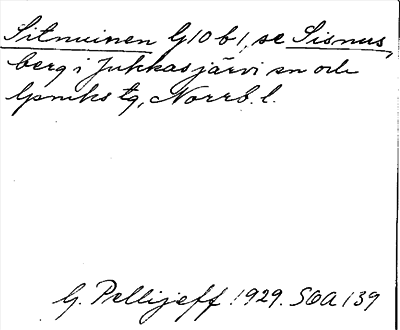 Sitnuinen G10 b1, se Sisnus,
berg i Jukkasjärvi sn och
lpmks tg, Norrb. l.
G. Pellijeff 1929. SOA 139